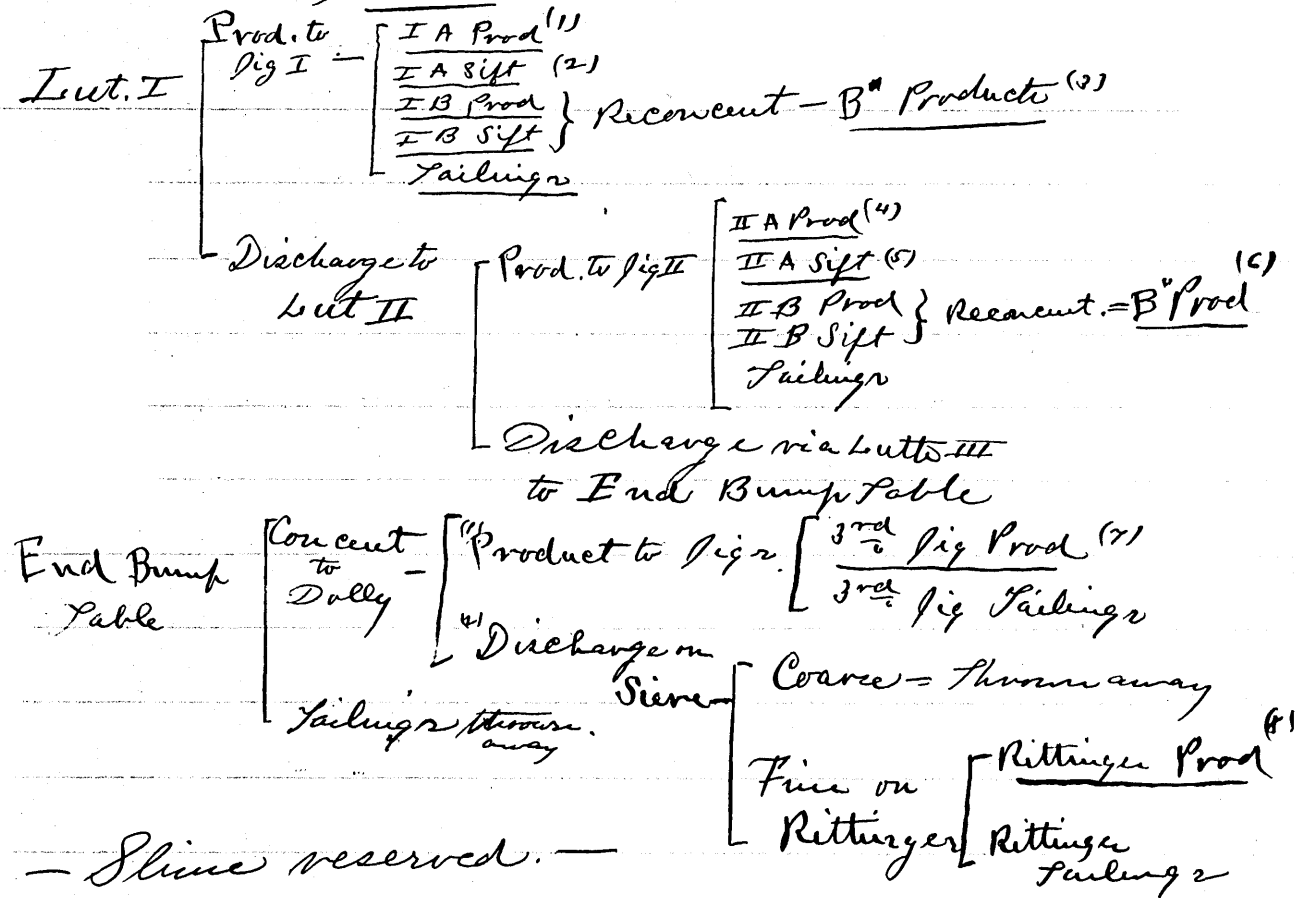 Lut. I
Prod. to
Jig I —
I A Prod (1)
I A Sift (2)
I B Prod
I B Sift } Reconcent — B" Products (3)
Tailings
Discharge to
Lut II
Prod. to Jig II
II A Prod (4)
II A Sift (5)
II B Prod
II B Sift } Reconcent. = B" Prod (6)
Tailings
Discharge via Lutte III
to End Bump Table
End Bump
Table
Concent
to
Dolly —
(1) Product to Jigs.
3rd Jig Prod (7)
3rd Jig Tailings
(2) Discharge on
Sieve —
Coarse = Thrown away
Fine on
Rittinger
Rittinger Prod (8)
Rittinger
Tailings
Tailings thrown.
away
— Slime reserved. —